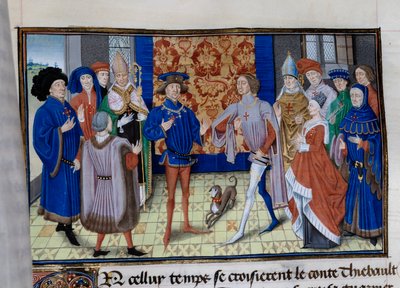 En celluy temps se croisierent le conte Thiebault